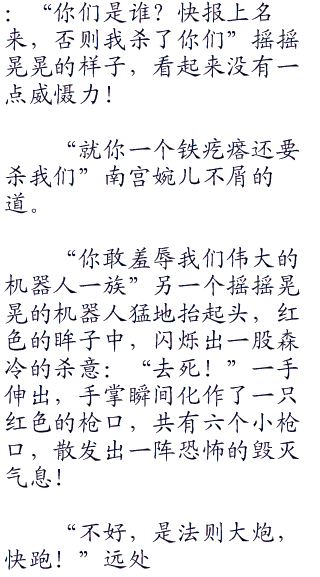 ：“你们是谁？快报上名
来，否则我杀了你们”摇摇
晃晃的样子，看起来没有一
点威慑力！
“就你一个铁疙瘩还要
杀我们”南宫婉儿不屑的
道。
“你敢羞辱我们伟大的
机器人一族”另一个摇摇晃
晃的机器人猛地抬起头，红
色的眸子中，闪烁出一股森
冷的杀意：“去死！”一手
伸出，手掌瞬间化作了一只
红色的枪口，共有六个小枪
口，散发出一阵恐怖的毁灭
气息！
“不好，是法则大炮，
快跑！”远处